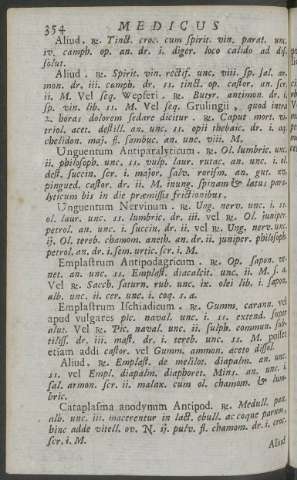 354 MEDICUS
Aliud. ℞. Tinct. croc. cum spirit. vin. parat. unc.
iv. camph. op. an. dr. i. diger. loco calido ad dis-
solut.
Aliud. ℞. Spirit. vin. rectif. unc. viii. sp. sal. ar-
mon. dr. iii. camph. dr. ss. tinct. op. castor. an. scr.
ii. M. Vel seq. Wepferi. ℞. Butyr. antimon. dr. i.
sp. vin. lib. ss. M. Vel seq. Grulingii, quod intra
2. horas dolorem sedare dicitur. ℞. Caput mort. vi-
triol. acet. destill. an. unc. ss. opii thebaic. dr. i. aq.
chelidon. maj. fl. sambuc. an. unc. viii. M.
Unguentum Antiparalyticum. ℞. Ol. lumbric. unc.
ii. philosoph. unc. ss. vulp. laur. rutac. an. unc. i. ol.
dest. succin. scr. i. major. salv. rorism. an. gut. xv.
pingued. castor. dr. ii. M. inung. spinam & latus para-
lyticum bis in die præmissis frictionibus.
Unguentum Nervinum. ℞. Ung. nerv. unc. i. ss.
ol. laur. unc. ss. lumbric. dr. iii. vel ℞. Ol. juniper.
petrol. an. unc. i. succin. dr. ii. vel ℞. Ung. nerv. unc.
ij. Ol. tereb. chamom. aneth. an. dr. ii. juniper. philosoph.
petrol. an. dr. i. sem. urtic. scr. i. M.
Emplastrum Antipodagricum. ℞. Op. sapon. ve-
net. an. unc. ss. Emplast. diacalcit. unc. ii. M. s. a.
Vel ℞. Sacch. saturn. rub. unc. ix. olei lib. i. sapon.
alb. unc. ii. cer. unc. i. coq. s. a.
Emplastrum Ischiadicum. ℞. Gumm. carann. vel
apud vulgares pic. naval. unc. i. ss. extend. super
alut. Vel ℞. Pic. naval. unc. ii. sulph. commun. sub-
tiliss. dr. iii. mast. dr. i. tereb. unc. ss. M. posset
etiam addi castor. vel Gumm. ammon. aceto dissol.
Aliud. ℞. Emplast. de melilot. diapalm. an. unc.
ss. vel Empl. diapalm. diaphoret. Mins. an. unc. i.
sal. armon. scr. ii. malax. cum ol. chamom. & lum-
bric.
Cataplasma anodynum Antipod. ℞. Medull. pan.
alb. unc. iii. macerentur in lact. ebull. ac coque parum,
hinc adde vitell. ov. N. ij. pulv. fl. chamom. dr. i. croc.
scr. i. M.
Aliud